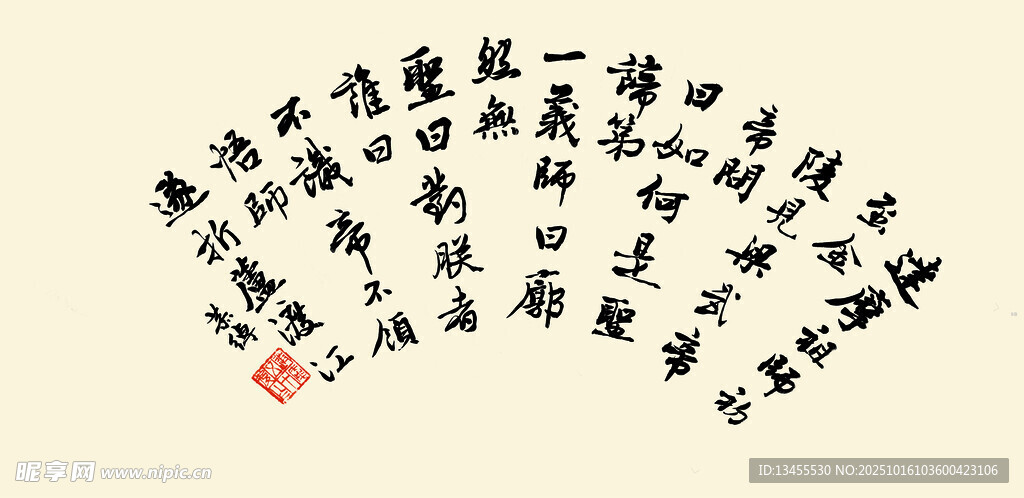 達摩祖師初
至金
陵見與武帝
帝問
曰如何是聖
諦第
一義師曰廓
然無
聖曰對朕者
誰曰
不識帝不領
悟師
遂折蘆渡江
昵享网 www.nipic.cn
ID:13455530 NO:20251016103600423106